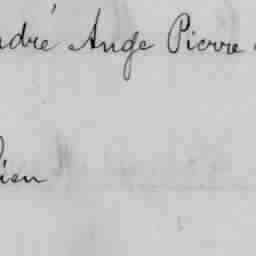 ndré Ange Pierre
ien